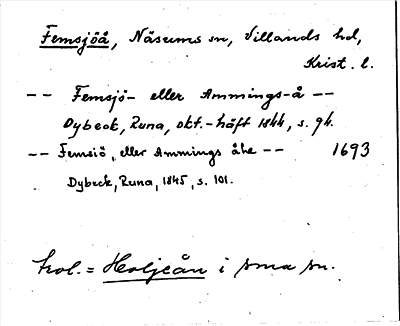 Femsjöå, Näsums sn, Villands hd,
Krist. l.
-- Femsjö- eller Ammings-å --
Dybeck, Runa, okt.-häft 1844, s. 94.
-- Femsiö, eller Ammings åhe -- 1693
Dybeck, Runa, 1845, s. 101.
trol. = Holjeån i sma sn.